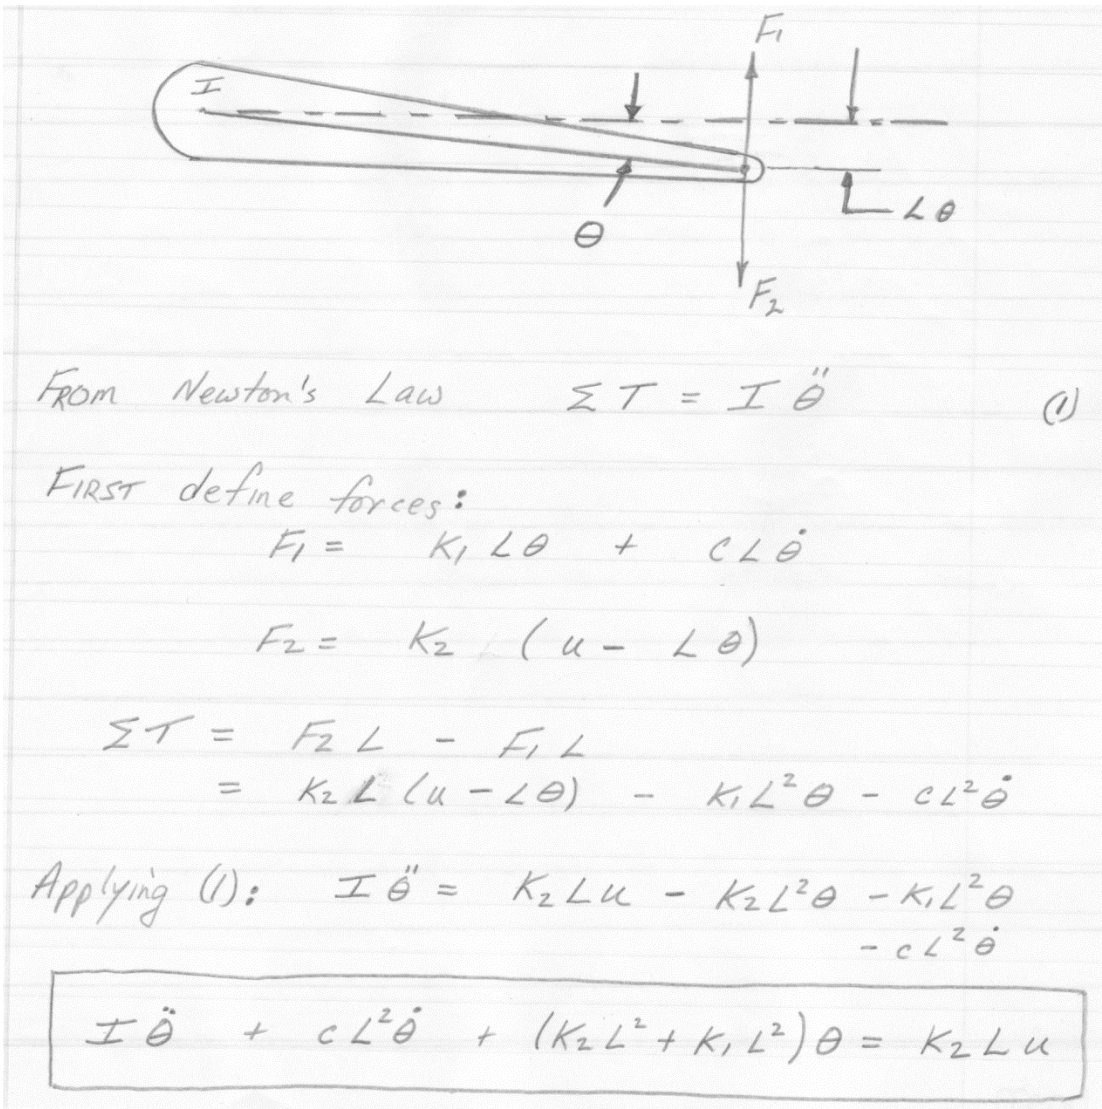 F₁
I
θ
Lθ
F₂
FROM Newton's Law ΣT = I θ̈ (1)
FIRST define forces:
F₁ = K₁ Lθ + c L θ̇
F₂ = K₂ (u - Lθ)
ΣT = F₂ L - F₁ L
= K₂ L (u - Lθ) - K₁L²θ - cL²θ̇
Applying (1): I θ̈ = K₂ L u - K₂L²θ - K₁L²θ
- cL²θ̇
I θ̈ + cL²θ̇ + (K₂L² + K₁L²)θ = K₂ L u